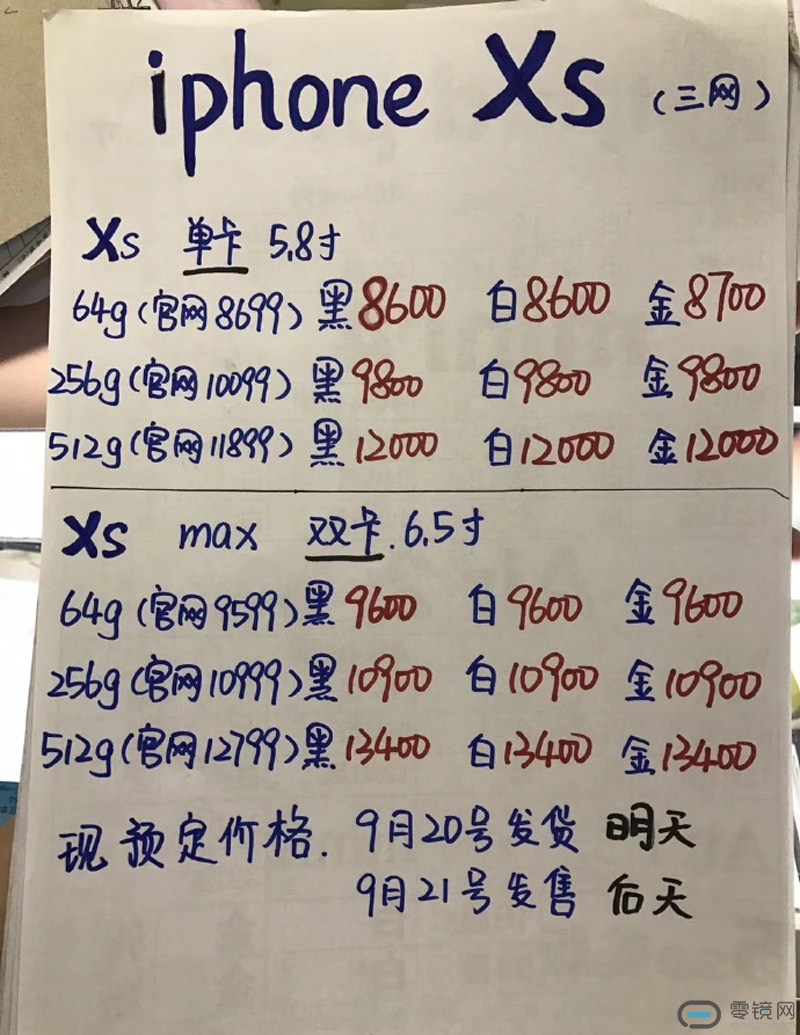 iphone Xs (三网)
Xs 单卡 5.8寸
64g(官网8699) 黑8600 白8600 金8700
256g(官网10099) 黑9800 白9800 金9800
512g(官网11899) 黑12000 白12000 金12000
Xs max 双卡.6.5寸
64g(官网9599)黑9600 白9600 金9600
256g(官网10999)黑10900 白10900 金10900
512g(官网12799)黑13400 白13400 金13400
现预定价格. 9月20号发货 明天
9月21号发售 后天
零镜网